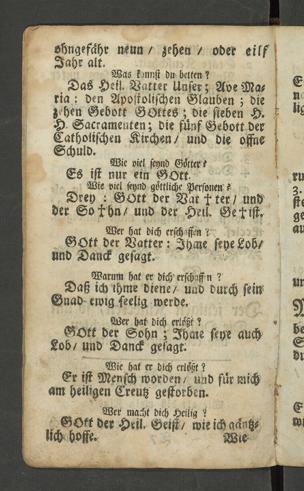 ohngefähr neun / zehen / oder eilf
Jahr alt.
Was kannst du betten?
Das Heil. Vatter Unser; Ave Ma-
ria: den Apostolischen Glauben; die
zehen Gebott GOttes; die sieben H.
H. Sacramenten; die fünf Gebott der
Catholischen Kirchen / und die offne
Schuld.
Wie viel seynd Götter?
Es ist nur ein GOtt.
Wie viel seynd göttliche Personen?
Drey: GOtt der Vat † ter / und
der So † hn / und der Heil. Ge † ist.
Wer hat dich erschaffen?
GOtt der Vatter: Ihme seye Lob /
und Danck gesagt.
Warum hat er dich erschaffen?
Daß ich ihme diene / und durch sein
Gnad ewig seelig werde.
Wer hat dich erlößt?
GOtt der Sohn; Ihme seye auch
Lob / und Danck gesagt.
Wie hat er dich erlößt?
Er ist Mensch worden / und für mich
am heiligen Creutz gestorben.
Wer macht dich Heilig?
GOtt der Heil. Geist / wie ich gäntz-
lich hoffe.
Wie